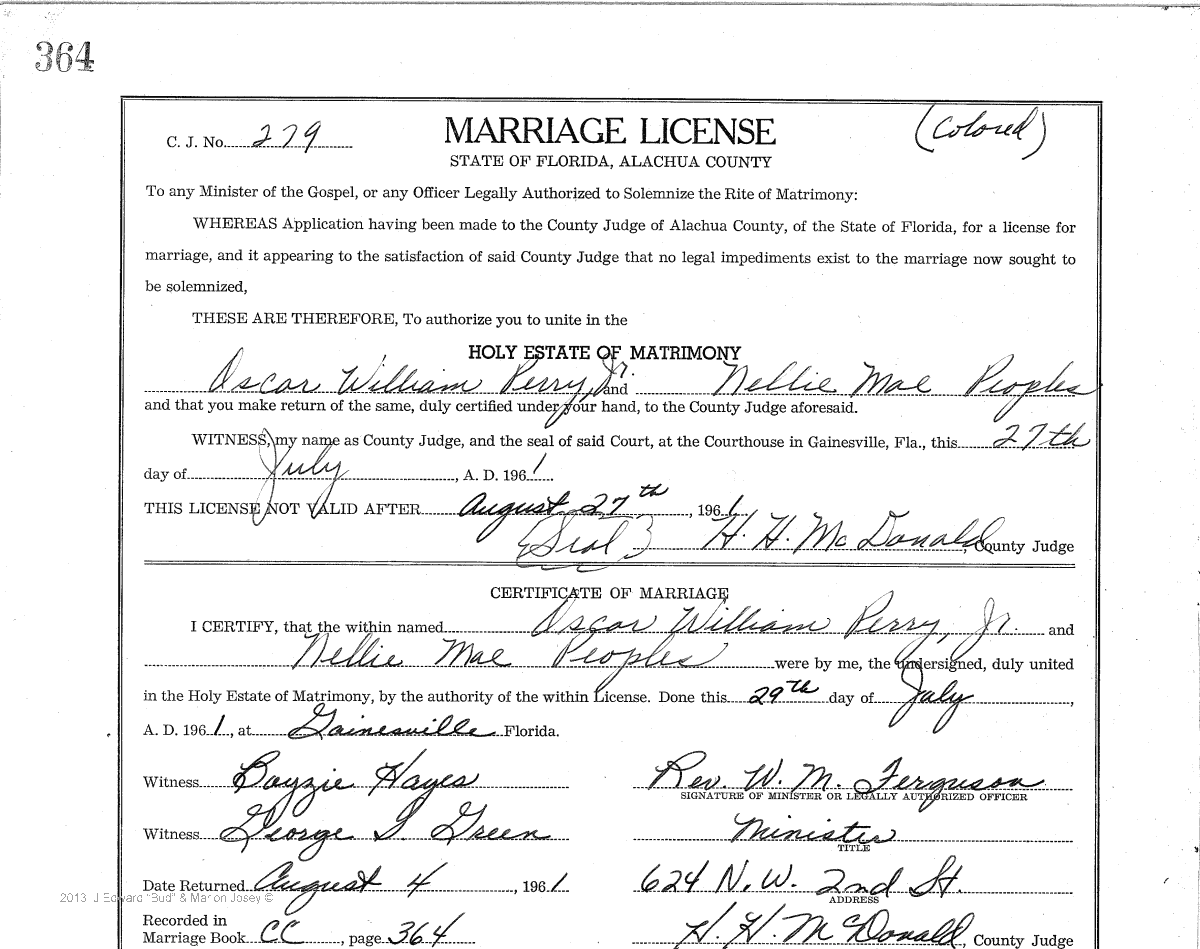 364
C. J. No. 279 MARRIAGE LICENSE (Colored)
STATE OF FLORIDA, ALACHUA COUNTY
To any Minister of the Gospel, or any Officer Legally Authorized to Solemnize the Rite of Matrimony:
WHEREAS Application having been made to the County Judge of Alachua County, of the State of Florida, for a license for
marriage, and it appearing to the satisfaction of said County Judge that no legal impediments exist to the marriage now sought to
be solemnized,
THESE ARE THEREFORE, To authorize you to unite in the
HOLY ESTATE OF MATRIMONY
Oscar William Perry, Jr. and Nellie Mae Peoples
and that you make return of the same, duly certified under your hand, to the County Judge aforesaid.
WITNESS, my name as County Judge, and the seal of said Court, at the Courthouse in Gainesville, Fla., this 27th
day of July, A. D. 1961
THIS LICENSE NOT VALID AFTER August 27th, 1961
{Seal} H. H. McDonald, County Judge
CERTIFICATE OF MARRIAGE
I CERTIFY, that the within named Oscar William Perry, Jr. and
Nellie Mae Peoples were by me, the undersigned, duly united
in the Holy Estate of Matrimony, by the authority of the within License. Done this 29th day of July,
A. D. 1961, at Gainesville Florida.
Witness Boyzie Hayes Rev. W. M. Ferguson
SIGNATURE OF MINISTER OR LEGALLY AUTHORIZED OFFICER
Witness George Green Minister
TITLE
Date Returned August 4, 1961 624 N.W. 2nd St.
ADDRESS
2013 J Edward "Bud" & Marion Josey ©
Recorded in
Marriage Book CC, page 364 H. H. McDonald, County Judge